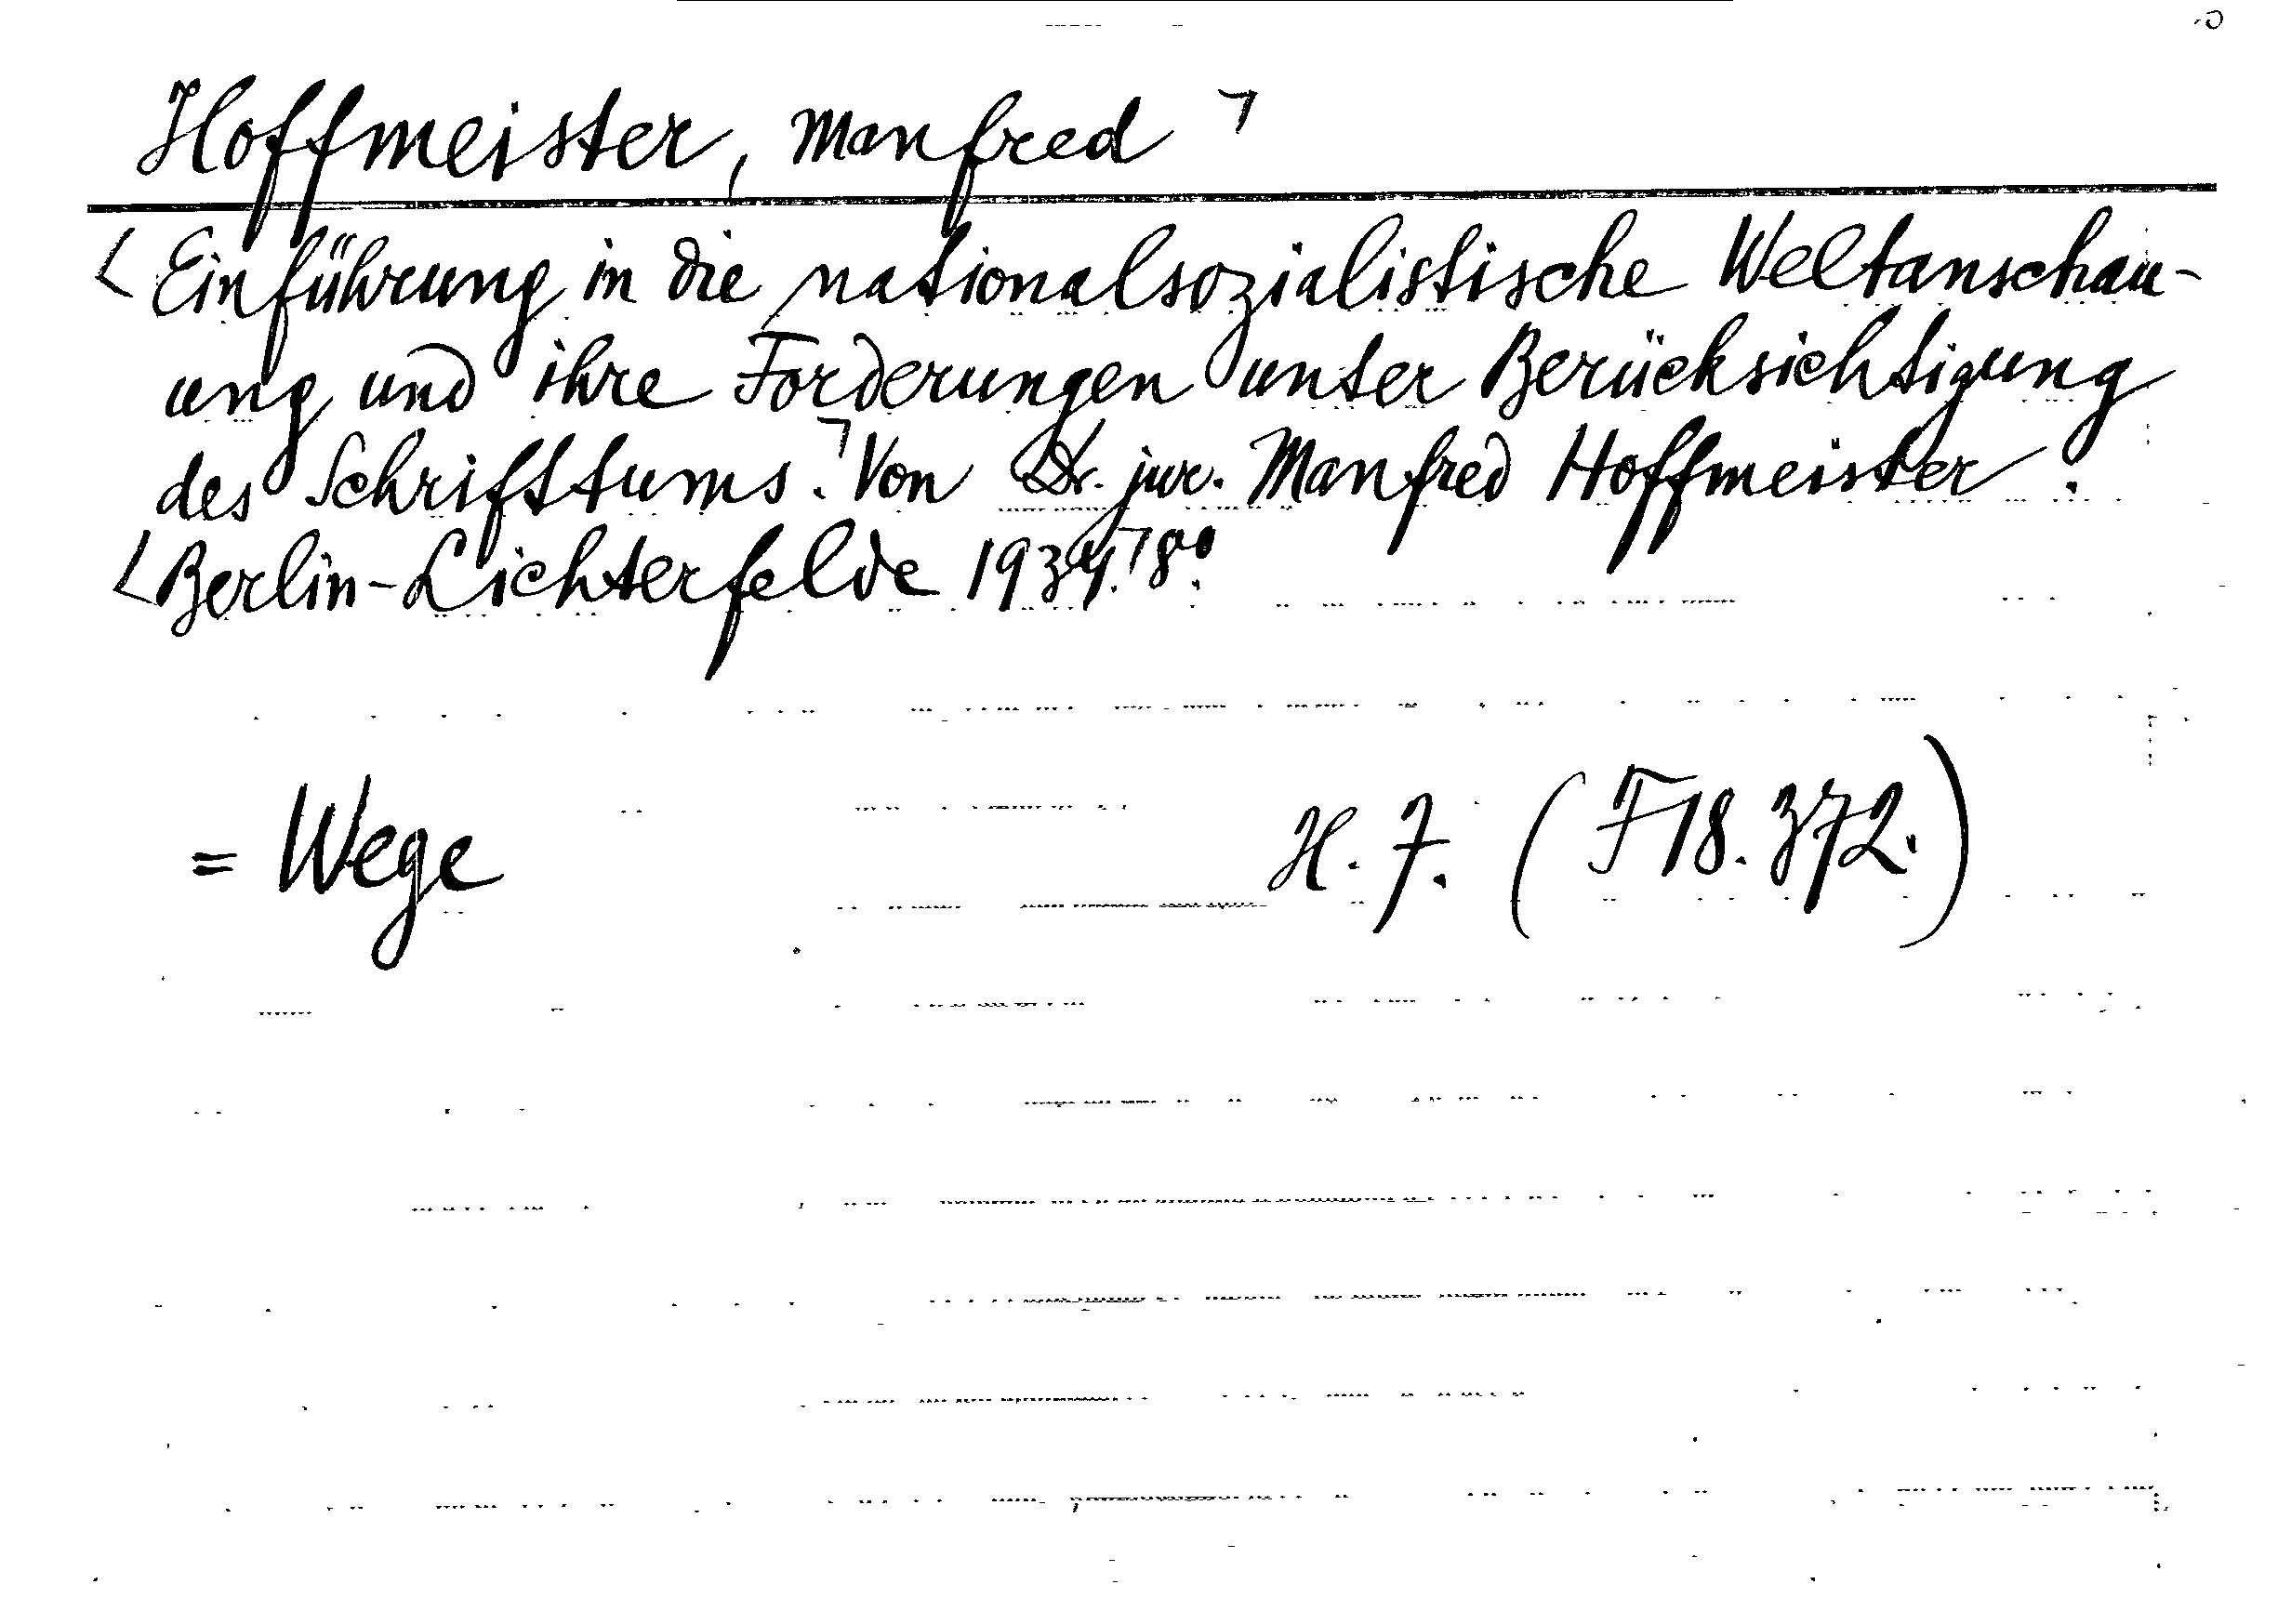 Hoffmeister, Manfred ⌝
⌊Einführung in die nationalsozialistische Weltanschau-
ung und ihre Forderungen unter Berücksichtigung
des Schrifttums.⌝ Von Dr. jur. Manfred Hoffmeister.
⌊Berlin-Lichterfelde 1934.⌝ 8°.
= Wege H. 7. (F 18. 372.)